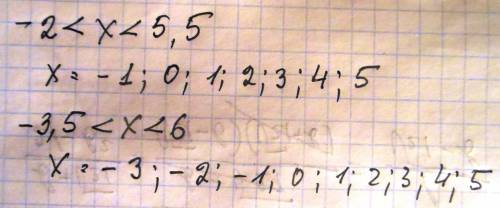 -2 < x < 5,5
x = -1; 0; 1; 2; 3; 4; 5
-3,5 < x < 6
x = -3; -2; -1; 0; 1; 2; 3; 4; 5